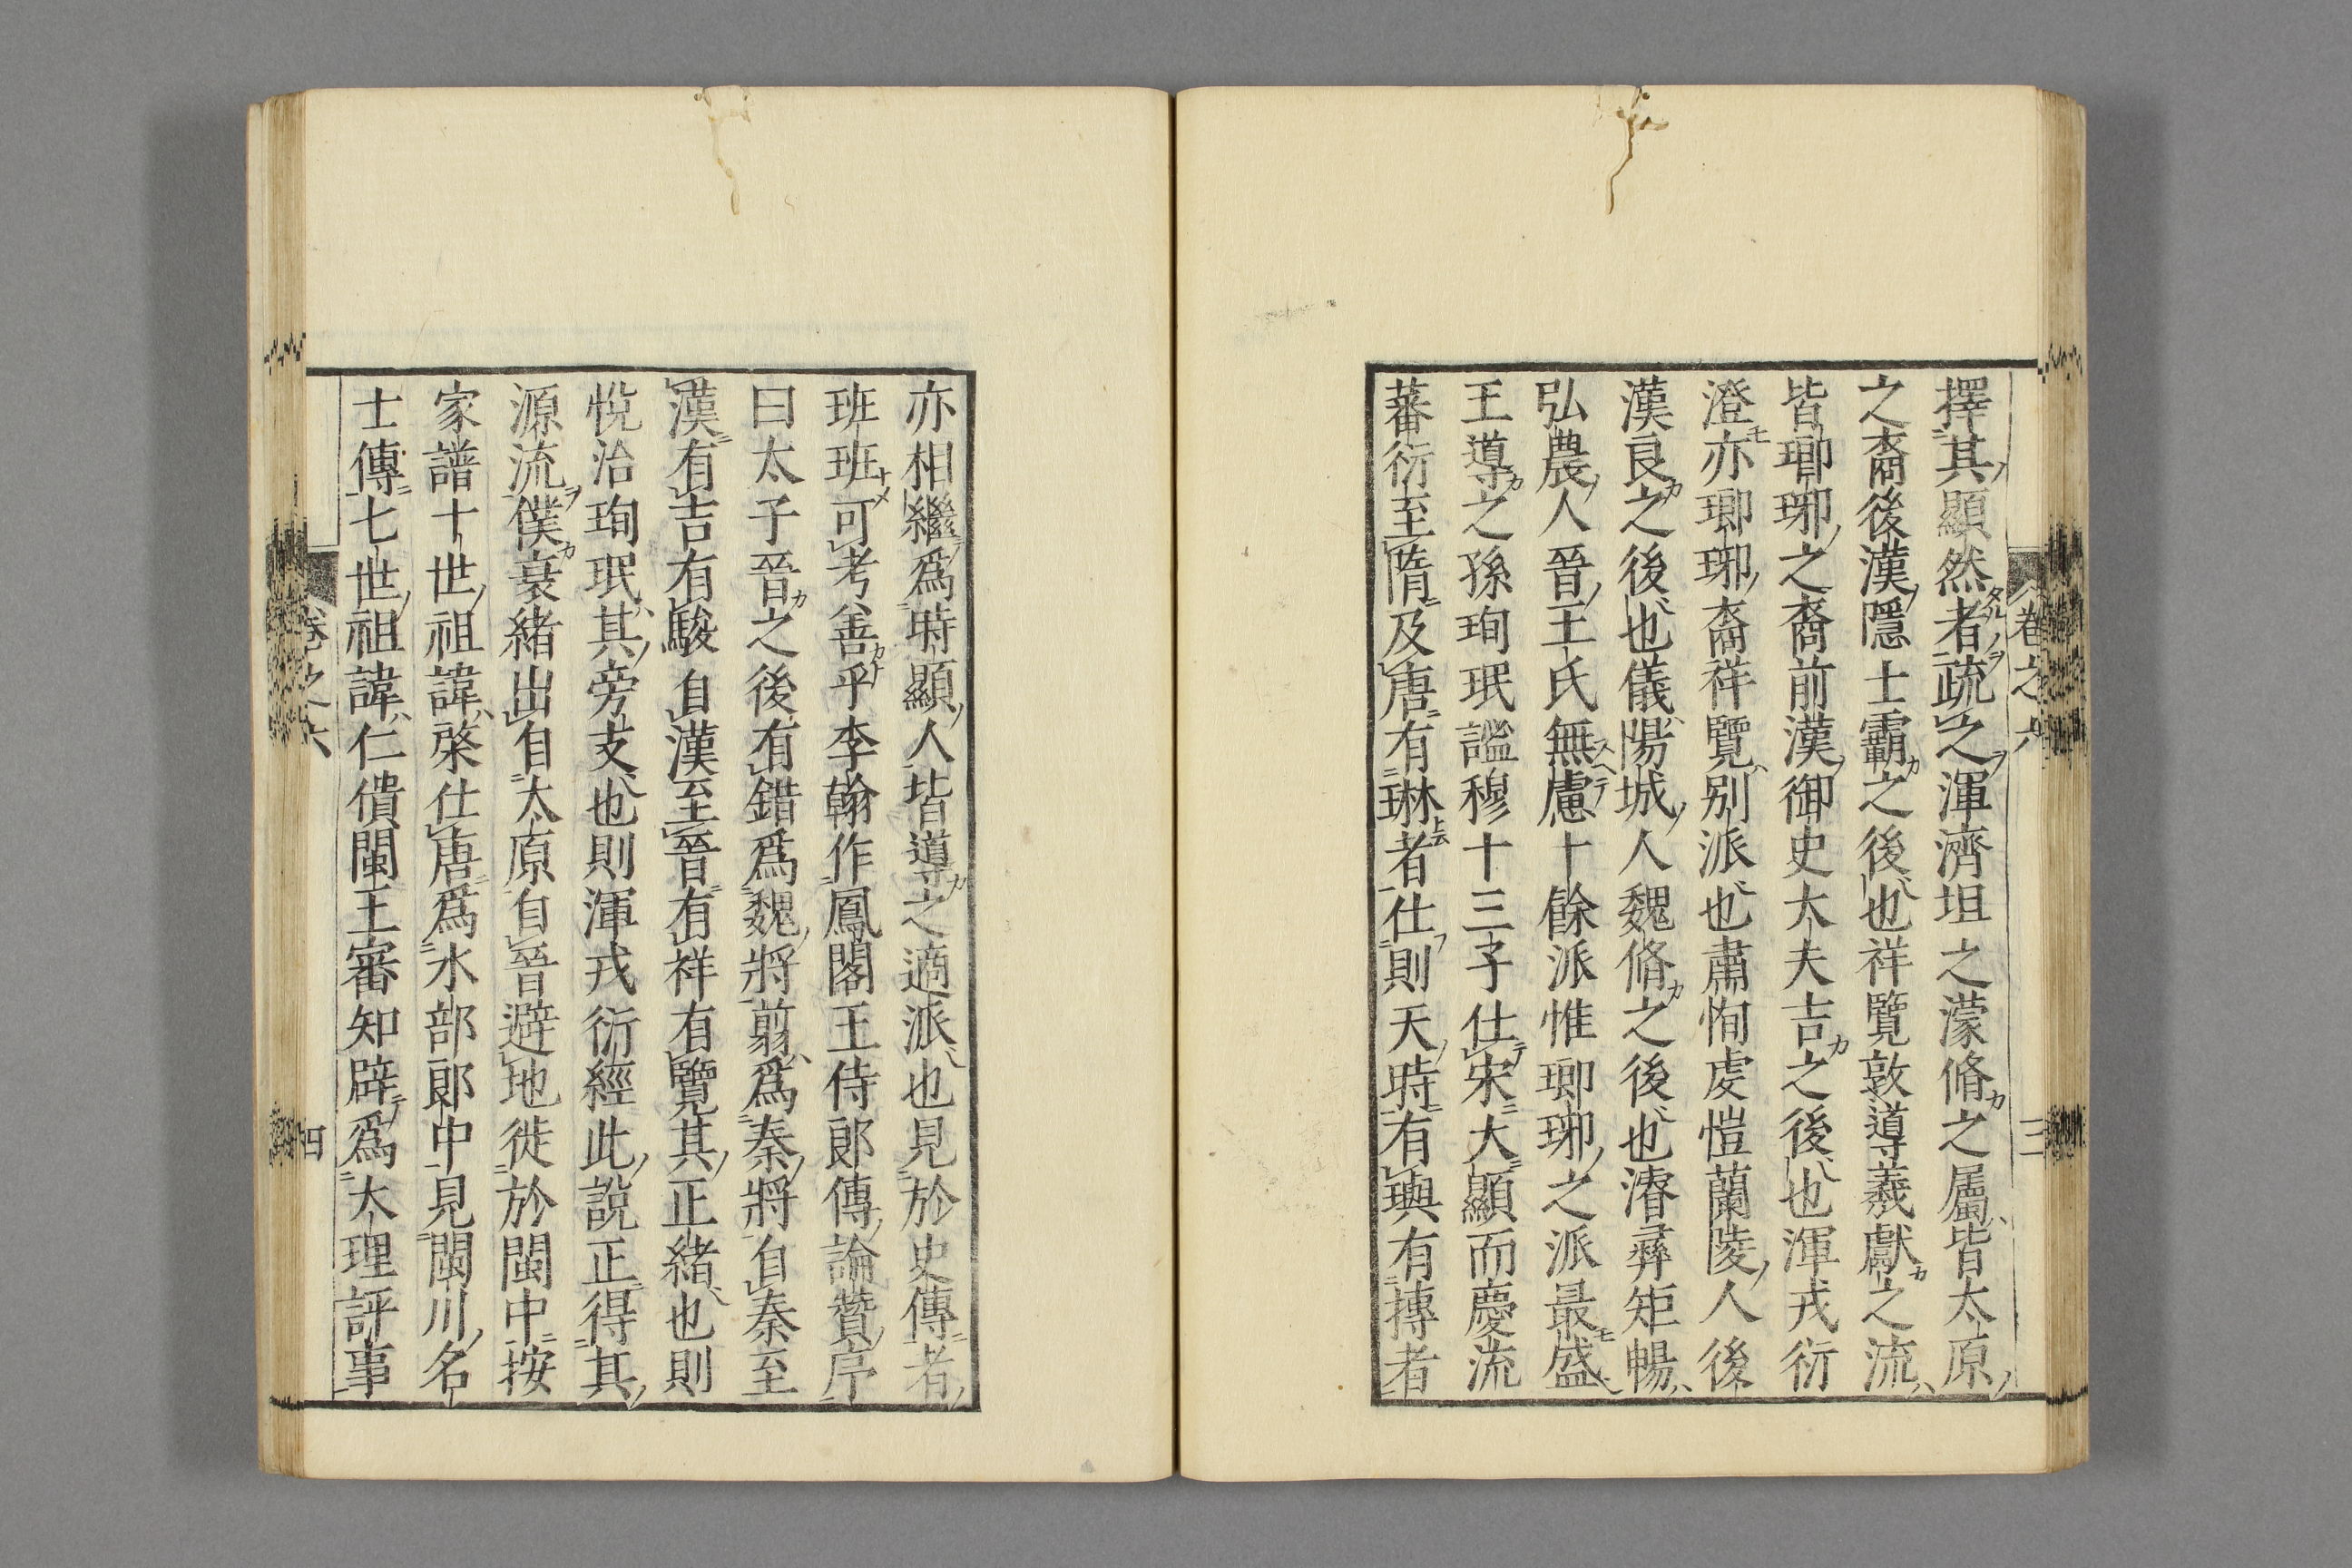 擇其顯然者疏之渾濟坦之濛脩之屬皆太原
之裔後漢隱士霸之後也祥覽敦導羲獻之流
皆瑯琊之裔前漢御史大夫吉之後也渾戎衍
澄亦瑯琊裔祥覽別派也肅恂虔愷蘭陵人後
漢良之後也儀陽城人魏脩之後也濬彞矩暢
弘農人晉王氏無慮十餘派惟瑯琊之派最盛
王導之孫珣珉謐穆十三子仕宋大顯而慶流
蕃衍至隋及唐有琳者仕則天時有璵有摶者
卷之六
三
亦相繼爲時顯人皆導之適派也見於史傳者
班班可考善乎李翰作鳳閣王侍郎傳論贊序
曰太子晉之後有錯爲魏將翦爲秦將自秦至
漢有吉有駿自漢至晉有祥有覽其正緒也則
悅洽珣珉其旁支也則渾戎衍經此說正得其
源流僕裒緒出自太原自晉避地徙於閩中按
家譜十世祖諱棨仕唐爲水部郎中見閩川名
士傳七世祖諱仁僙閩王審知辟爲大理評事
卷之六
四